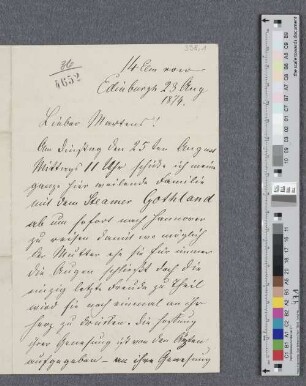 4652
14 Elm row
Edinburgh 23 Aug
1874.
Lieber Martens!
Am Dienstag den 25 ten August
Mittags 11 Uhr schicke ich meine
ganze hier weilende Familie
mit dem Steamer Gothland
ab um sofort nach Hannover
zu reisen damit wo möglich
der Mutter ehe sie für immer
die Augen schließt doch die
einzig letzte Freude zu Theil
wird sie noch einmal an ihr
Herz zu drücken. die Hoffnung
ihrer Genesung ist von den Ärzten
aufgegeben – an ihre Genesung